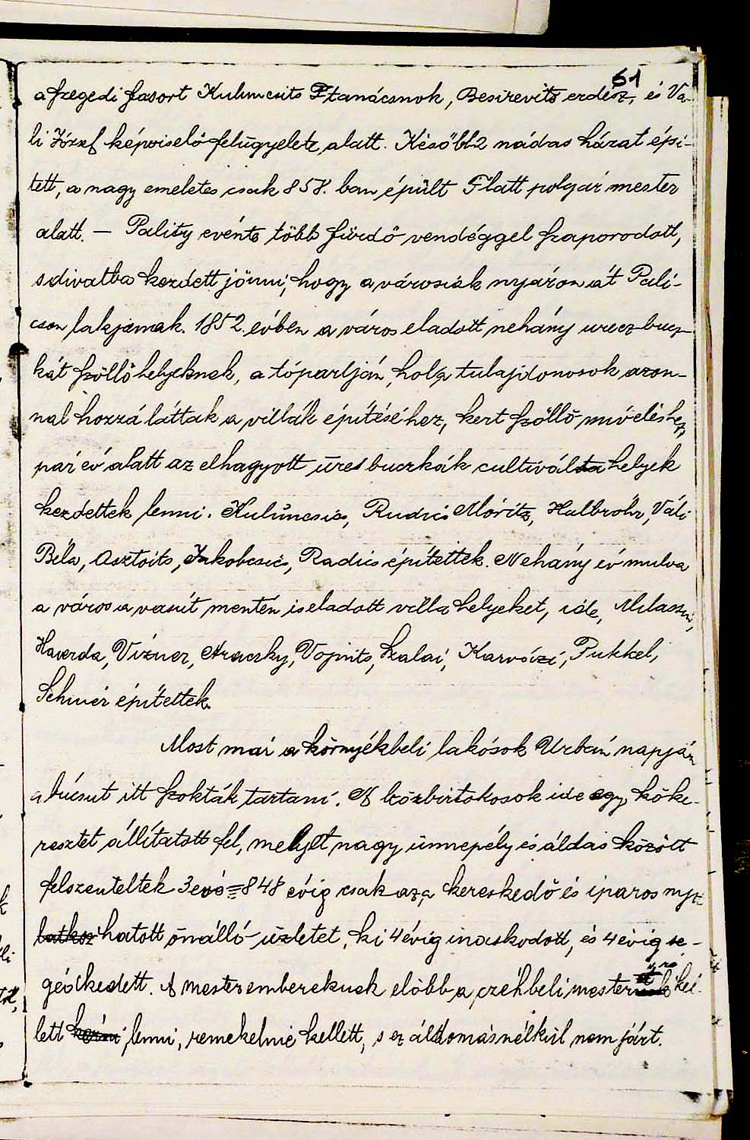 61
a szegedi fasort Kuluncsits Ftanácsnok, Besirevits erdész, és Vá-
li József képviselő felügyelete, alatt. Később 2 nádas házat épi-
tett, a nagy emeletes csak 858. ban épült Flatt polgár mester
alatt. — Pality évente több fürdő vendéggel szaporodott,
s divatba kezdett jönni, hogy a városiak nyáron át Pali-
cson lakjanak. 1852 évben a város eladott nehány bucz-
kát szőllő helyeknek, a tó partján, holg tulajdonosok azon-
nal hozzá láttak a villák építéséhez, kert szőllő míveléshez,
pár év alatt az elhagyott üres buczkák cultivált helyek
kezdettek lenni. Kuluncsic, Rudics Móritz, Halbrohr, Váli
Béla, Asztoits, Jakobcsic, Radics építettek. Nehány év mulva
a város a vasút mentén is eladott villa helyeket, ide, Milassin,
Haverda, Vizner, Aracsky, Vojnits, Szalai, Karvázi, Pukkel,
építettek.
Most már a környékbeli lakósok Urbán napján
a búcsut itt szokták tartani. A közbirtokosok ide egy, kőke-
resztet állítatott fel, melyet nagy ünnepély és áldás között
felszenteltek 848 évig csak az a kereskedő és iparos nyi
hatott önálló üzletet, ki 4 évig inaskodott, és 4 évig se-
gédkedett. A mester embereknek előbb a czéhbeli mester kel
lett lenni, remekelnie kellett, s ez áldomás nélkül nem járt.